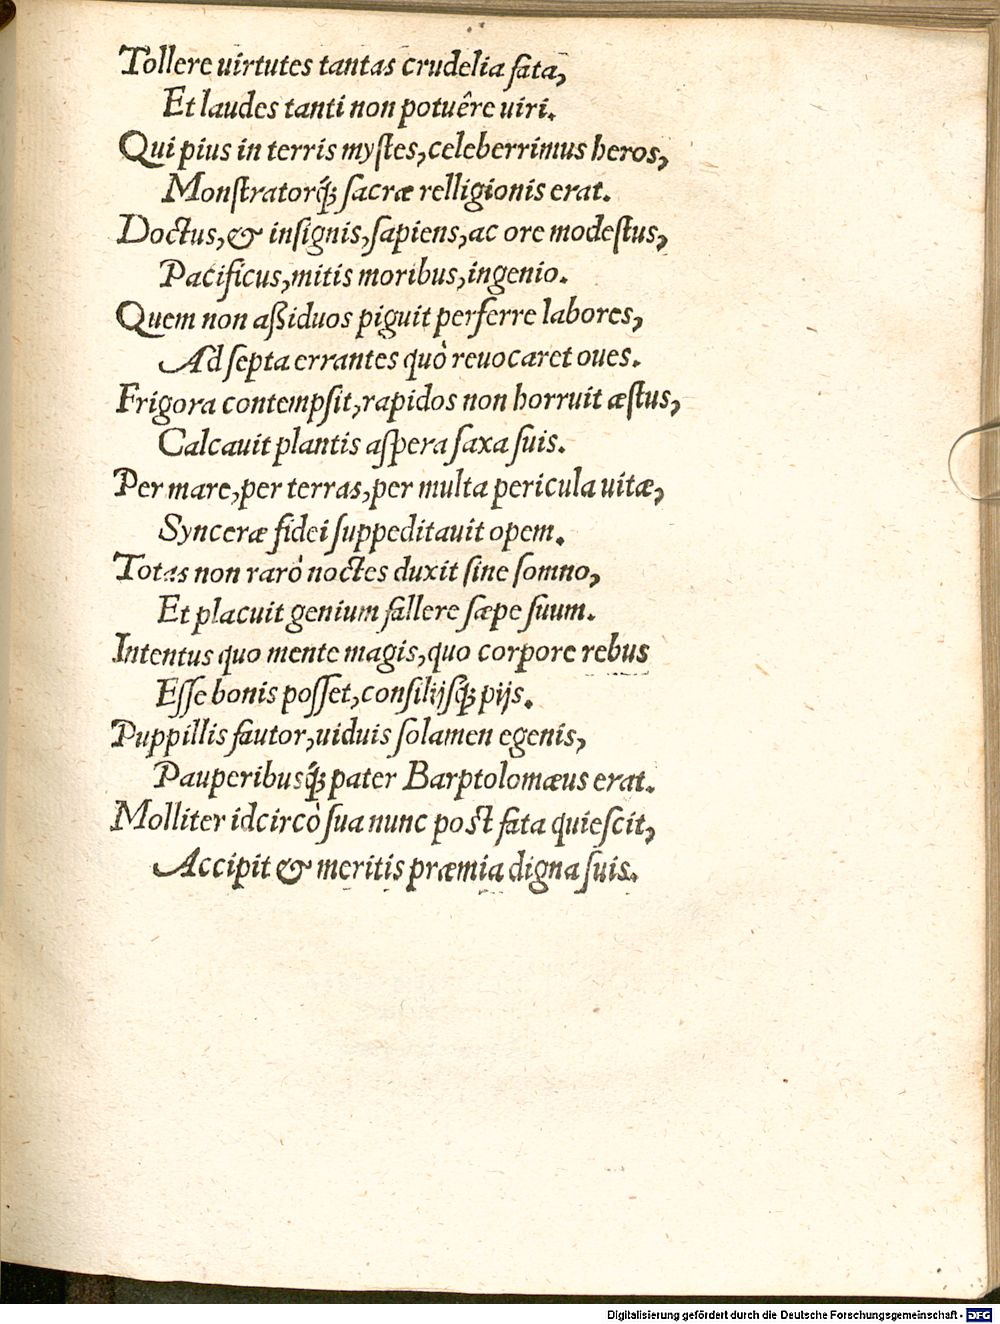 Tollere uirtutes tantas crudelia fata,
Et laudes tanti non potuêre uiri.
Qui pius in terris myſtes, celeberrimus heros,
Monſtratorq́; ſacræ relligionis erat.
Doctus, & inſignis, ſapiens, ac ore modeſtus,
Pacificus, mitis moribus, ingenio.
Quem non aßiduos piguit perferre labores,
Ad ſepta errantes quò reuocaret oues.
Frigora contempſit, rapidos non horruit æſtus,
Calcauit plantis aſpera ſaxa ſuis.
Per mare, per terras, per multa pericula uitæ,
Synceræ fidei ſuppeditauit opem.
Totas non rarò noctes duxit ſine ſomno,
Et placuit genium fallere ſæpe ſuum.
Intentus quo mente magis, quo corpore rebus
Eſſe bonis poſſet, conſilijſq́; pijs.
Puppillis fautor, uiduis ſolamen egenis,
Pauperibusq́; pater Barptolomæus erat.
Molliter idcircò ſua nunc poſt fata quieſcit,
Accipit & meritis præmia digna ſuis.
Digitalisierung gefördert durch die Deutsche Forschungsgemeinschaft - DFG